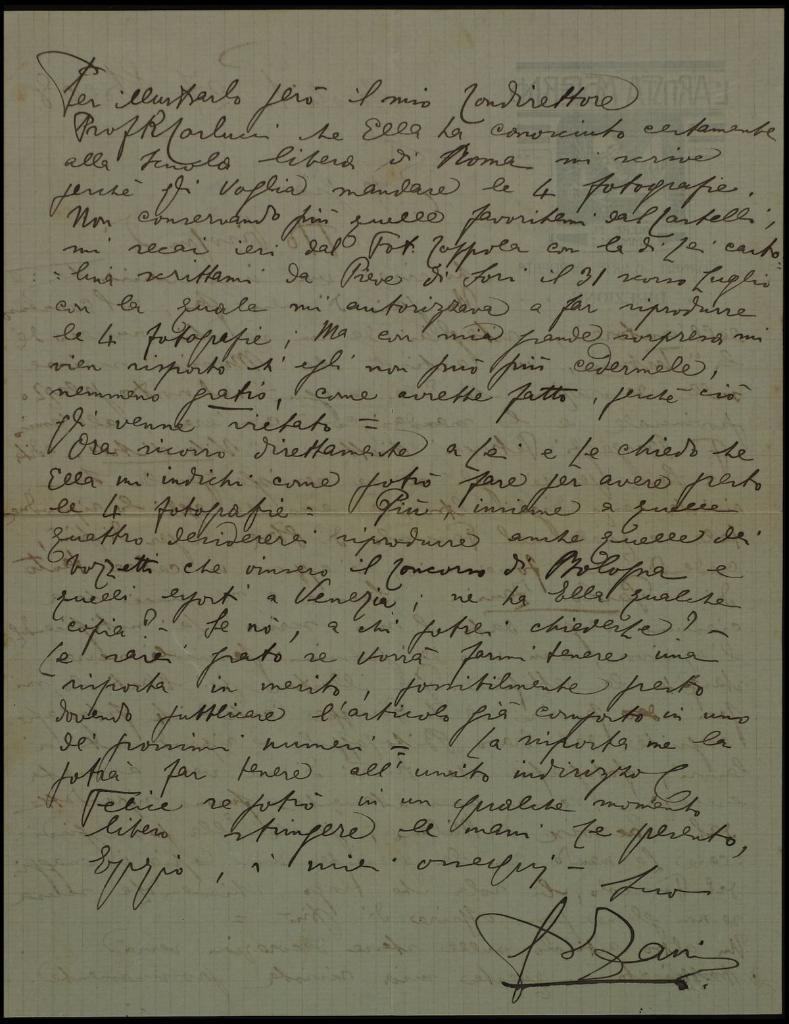 Per illustrarlo però il mio Condirettore
Prof R. Carlucci che Ella ha conosciuto certamente
alla Scuola libera di Roma mi scrive
perchè gli voglia mandare le 4 fotografie.
Non conservando più quelle favoritemi dal Castelli,
mi recai ieri dal Fot. Coppola con la di Lei carto-
=lina scrittami da Pieve di Sori il 31 scorso Luglio
con la quale mi autorizzava a far riprodurre
le 4 fotografie; Ma con mia grande sorpresa mi
vien risposto ch'egli non può più cedermele,
nemmeno gratis, come avrebbe fatto, perchè ciò
gli venne vietato =
Ora ricorro direttamente a Lei e Le chiedo che
Ella mi indichi come potrò fare per avere presto
le 4 fotografie = Più, insieme a quelle
quattro desidererei riprodurre anche quelle dei
bozzetti che vinsero il Concorso di Bologna e
quelli esposti a Venezia; ne ha Ella qualche
copia? - Se nò, a chi potrei chiederle? -
Le sarei grato se vorrà farmi tenere una
risposta in merito, possibilmente presto
dovendo pubblicare l'articolo già composto in uno
dei prossimi numeri = La risposta me la
potrà far tenere all'unito indirizzo
Felice se potrò in un qualche momento
libero stringerLe le mani Le presento,
Egregio, i miei ossequi -
Suo
Zani